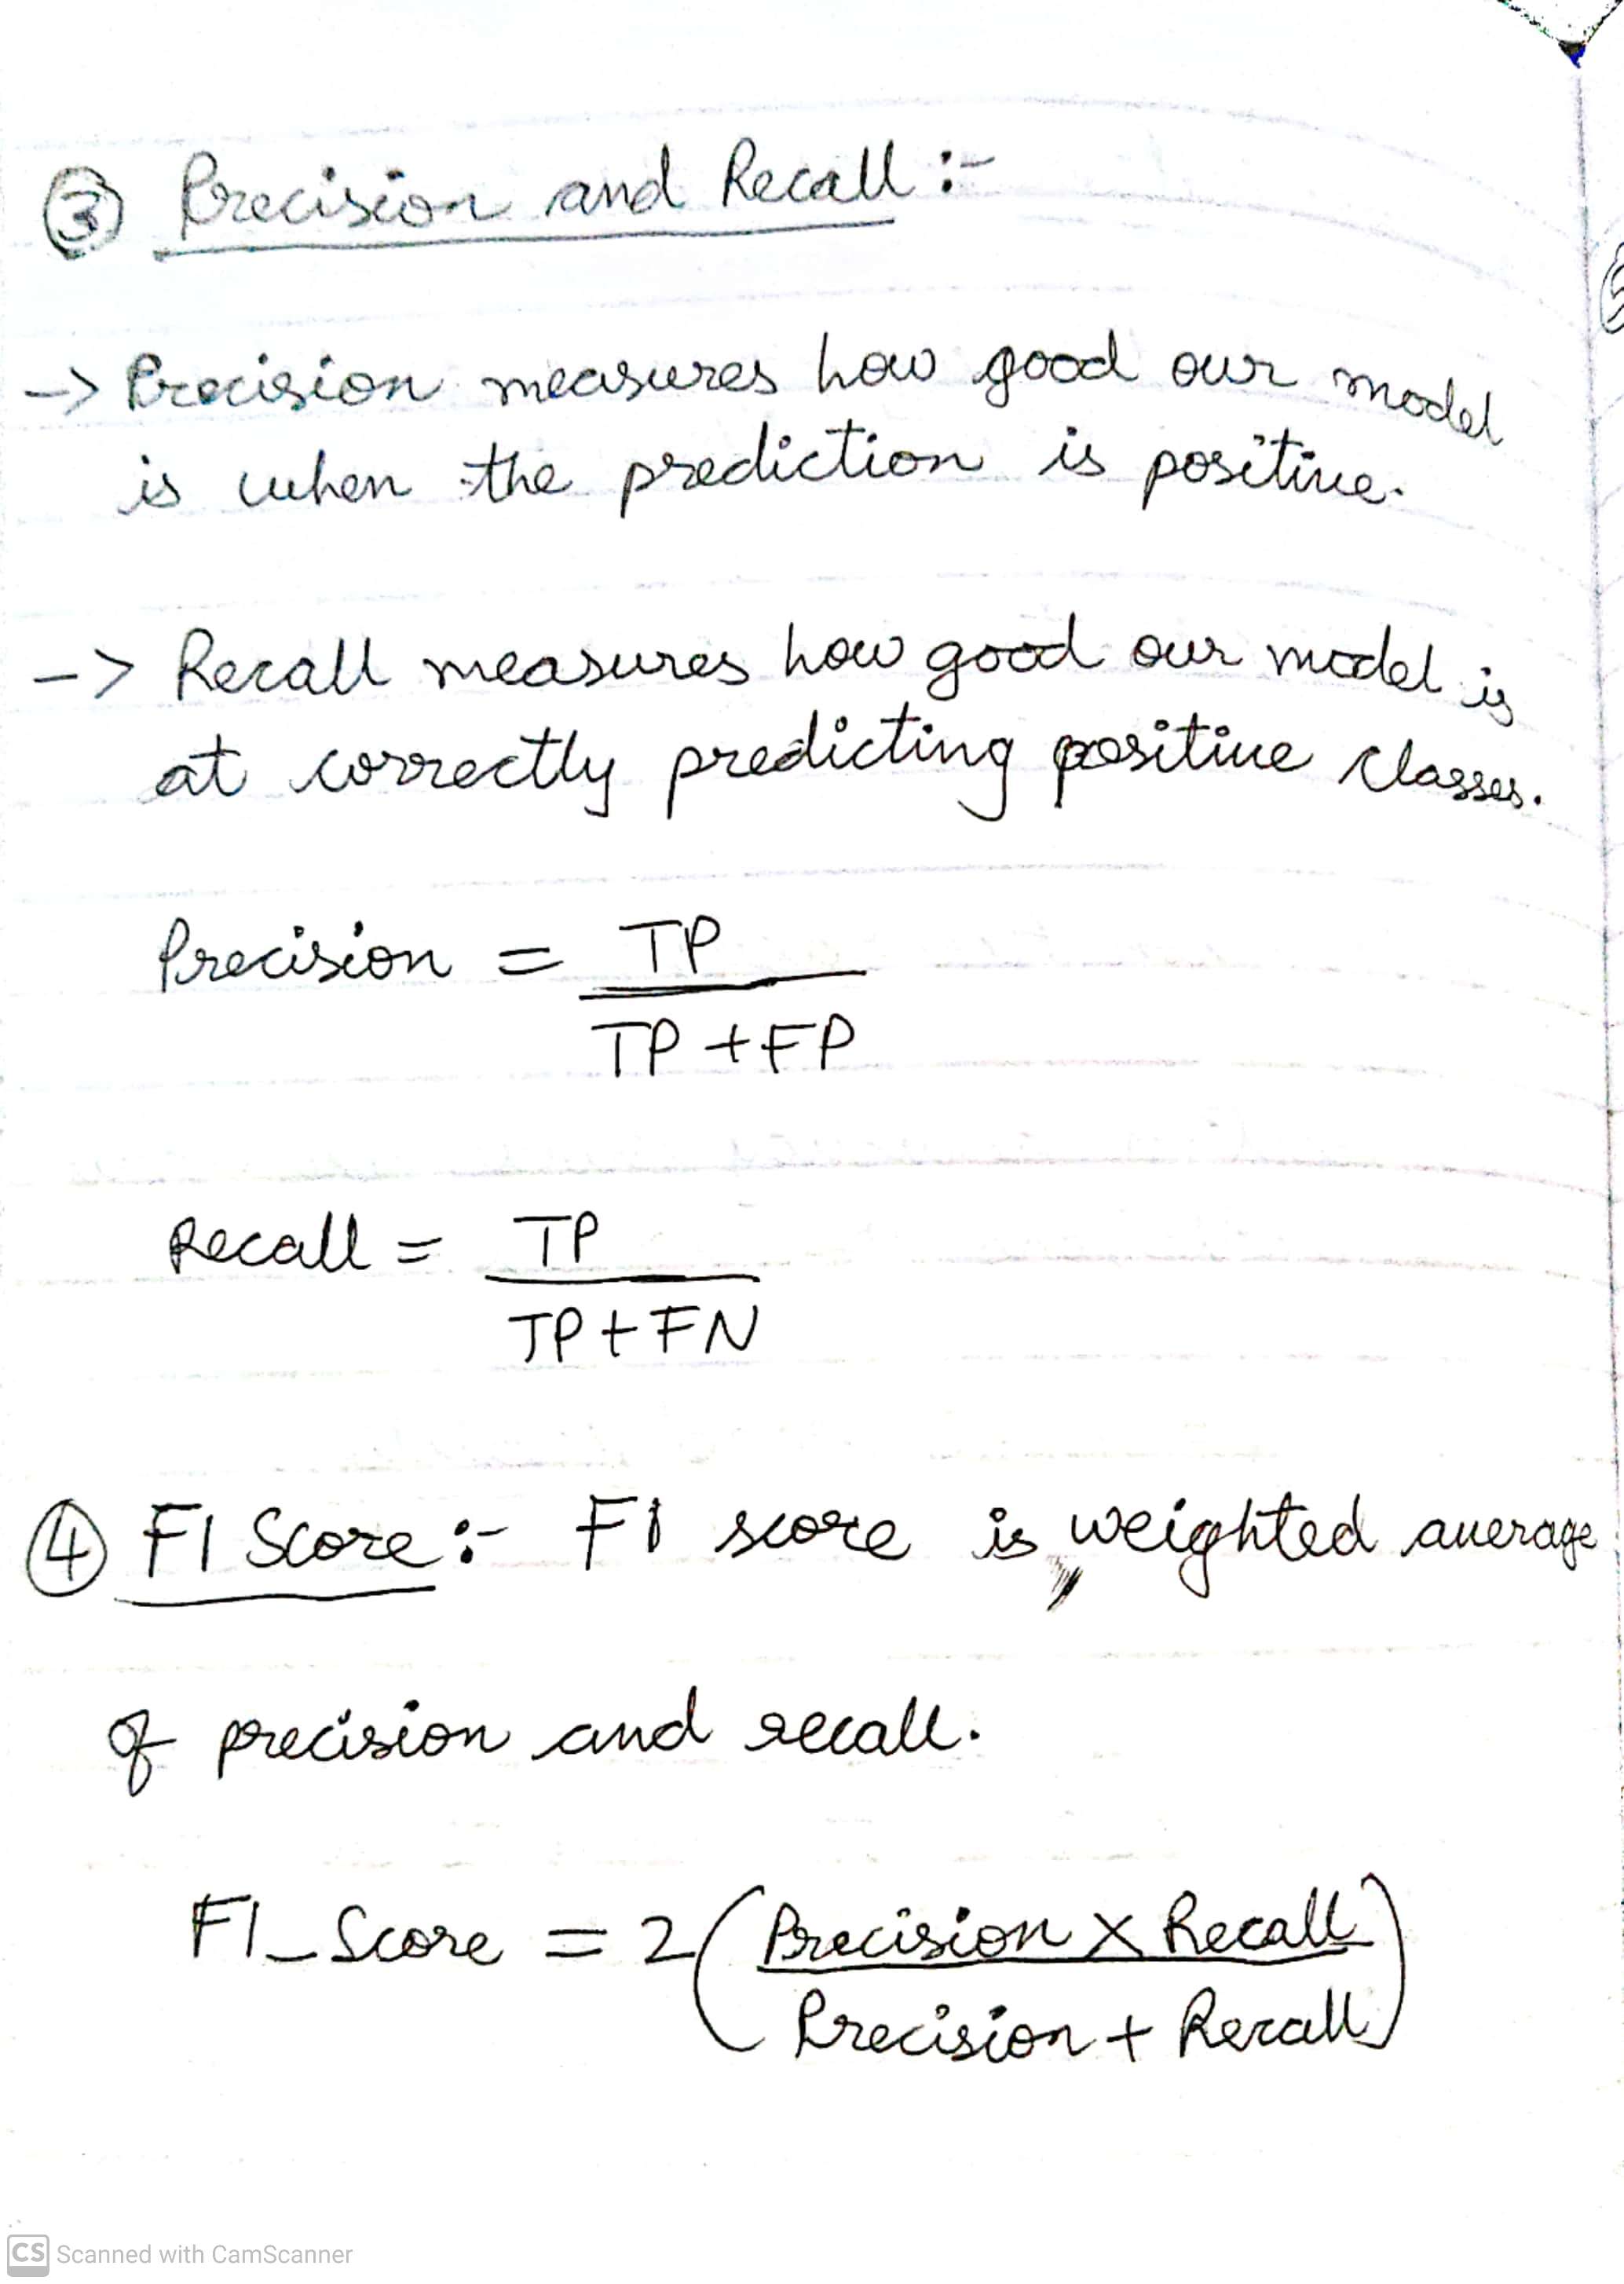 ③ Precision and Recall :-
-> Precision measures how good our model
is when the prediction is positive.
-> Recall measures how good our model is
at correctly predicting positive classes.
Precision = TP
TP + FP
Recall = TP
TP + FN
④ F1 Score :- F1 score is weighted average
of precision and recall.
F1_Score = 2 ( Precision X Recall
Precision + Recall )
CS Scanned with CamScanner